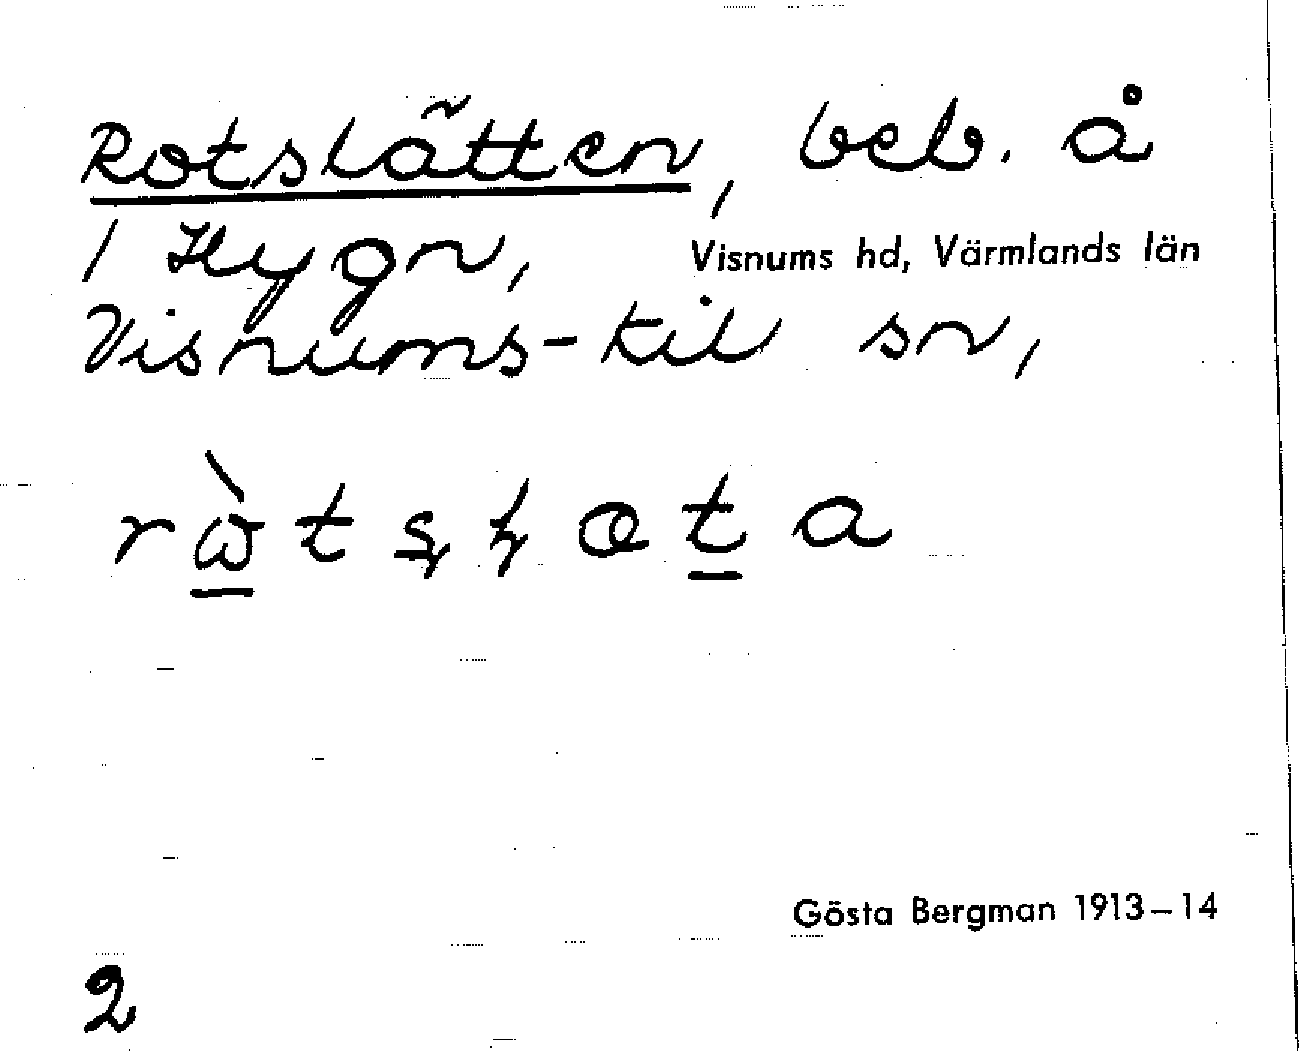 Rotslätten, beb. å
1 Hygn, Visnums hd, Värmlands län
Visnums-Kil sn,
Gösta Bergman 1913–14
2